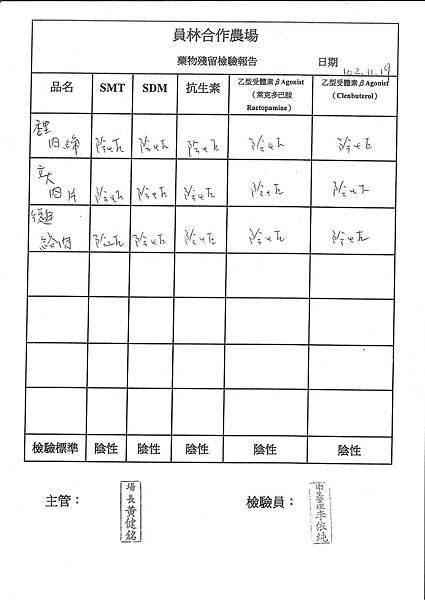 員林合作農場
藥物殘留檢驗報告 日期 102.11.19
品名 SMT SDM 抗生素 乙型受體素βAgonist（萊克多巴胺 Ractopamine） 乙型受體素βAgonist（Clenbuterol）
肉絲 陰性 陰性 陰性 陰性 陰性
立大 肉片 陰性 陰性 陰性 陰性 陰性
絞肉 陰性 陰性 陰性 陰性 陰性
檢驗標準 陰性 陰性 陰性 陰性 陰性
主管： 場長黃健銘 檢驗員： 衛生管理李依純